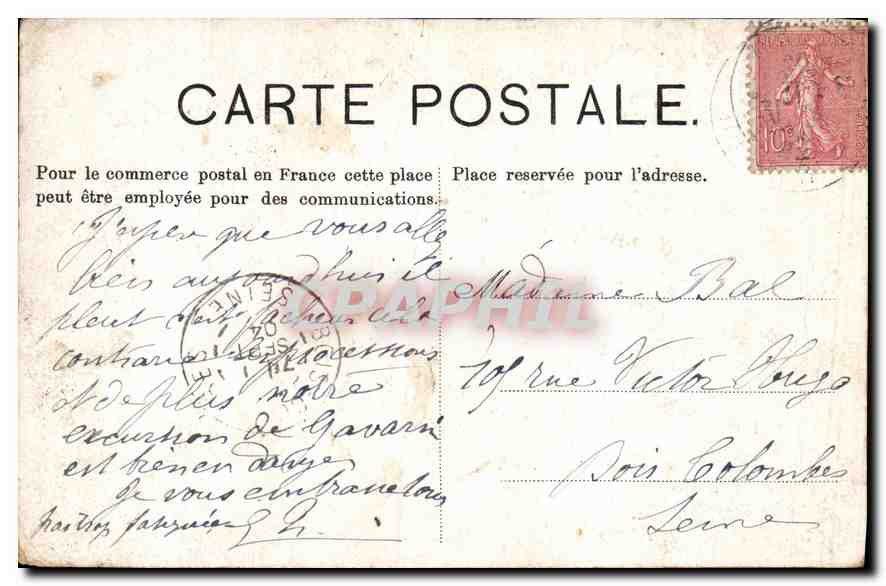 CARTE POSTALE.
Pour le commerce postal en France cette place
peut être employée pour des communications.
Place reservée pour l'adresse.
10c
que vous alle
bien aujourd'hui il
pleut c'est fâcheux cela
contrarie les processions
et de plus notre
excursion de Gavarni
est bien en danger
Je vous embrasse tous
pas trop fatiguée
Madame Bal
105 rue Victor Hugo
Bois Colombes
Seine
BOIS
SEINE
CPAPHIL